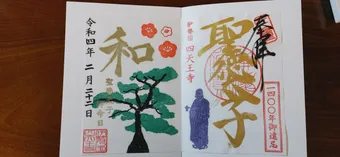 奉拝
一四〇〇年御遠忌
聖徳太子
伊勢国 四天王寺
和
令和四年二月二十二日